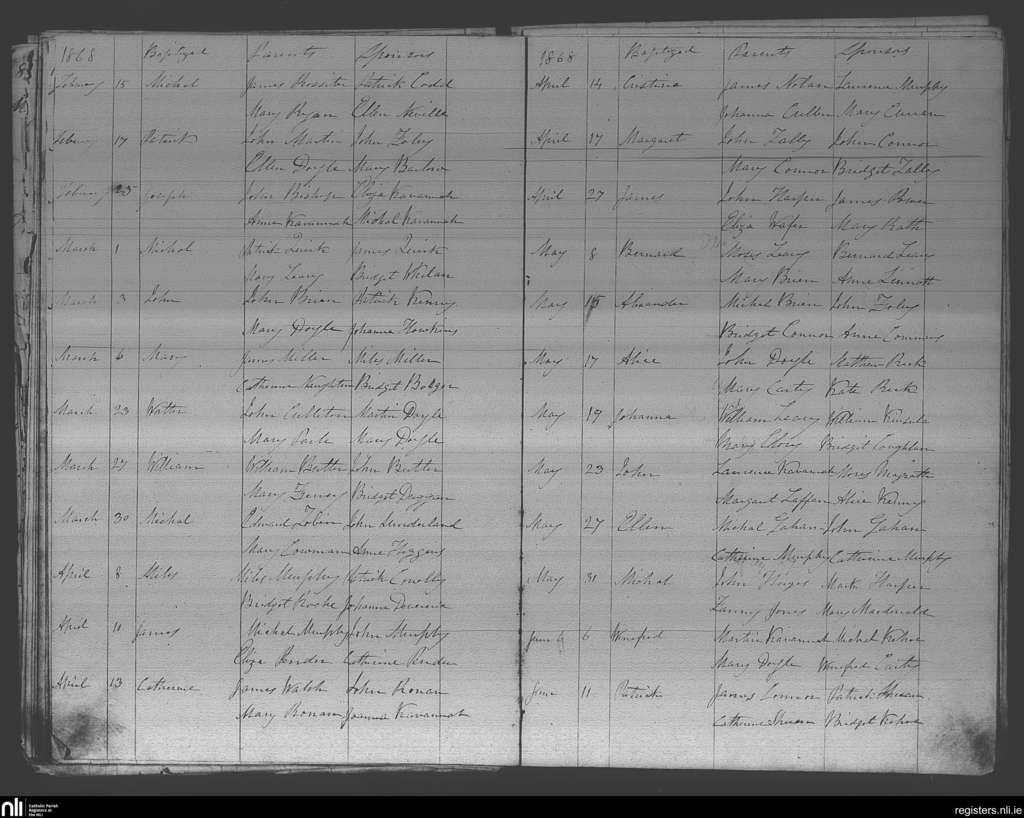 1868 Baptized Parents Sponsors
February 15 Michal James Rossiter Patrick Codd
Mary Ryan Ellen Neville
February 17 Patrick John Martin John Foley
Ellen Doyle Mary Barlow
February 25 Joseph John Bishop Eliza Kavanah
Anne Kavannah Michal Kavannah
March 1 Michal Patrick Quirk James Quirk
Mary Leary Bridget Whelan
March 3 John John Brien Patrick Kenny
Mary Doyle Johanna Hawkins
March 6 Mary James Miller Miles Miller
Catherine Bridget Bolger
March 23 Walter John Culleton Martin Doyle
Mary Mary Doyle
March 27 William William Butler John Butler
Mary Bridget Duggan
March 30 Michal Edward Tobin John Sunderland
Mary Anne Higgens
April 8 Miles Miles Murphy Patrick Conolly
Bridget Roske Johanna Devereix
April 10 James Michal Murphy John Murphy
Eliza Pender Catherine Pender
April 13 Catherine James Walsh John Ronan
Mary Ronan Joanna Kavannah
1868 Baptized Parents Sponsors
April 14 Cristina James Nolan Laurence Murphy
Johanna Cullen Mary Curran
April 17 Margaret John Lally John Connor
Mary Connor Bridget Lally
April 27 James John Harper James Power
Eliza Wafer Mary Rath
May 8 Bernard Moses Leary Bernard Leary
Mary Brien Anne Sinnott
May 15 Alexander Michal Brien John Foley
Bridget Connor Anne Connors
May 17 Alice John Doyle Mathew Peck
Mary Carty Kate Peck
May 19 Johanna William Leary William Kinsela
Mary Bridget Coughlan
May 23 John Laurence Kavanah Moses Magrath
Margaret Laffan Alice Kenny
May 27 Ellen Michal Gahan John Gahan
Catherine Murphy Catherine Murphy
May 31 Michal John Hayes Mark Harper
Fanny Jones Mary Macdonald
June 6 6 Winefred Martin Kavannah Michel Kehoe
Mary Doyle Winefred Carty
June 11 Patrick James Connor Patrick
Catherine Bridget Kehoe
nli Catholic Parish
Registers at
the NLI
registers.nli.ie